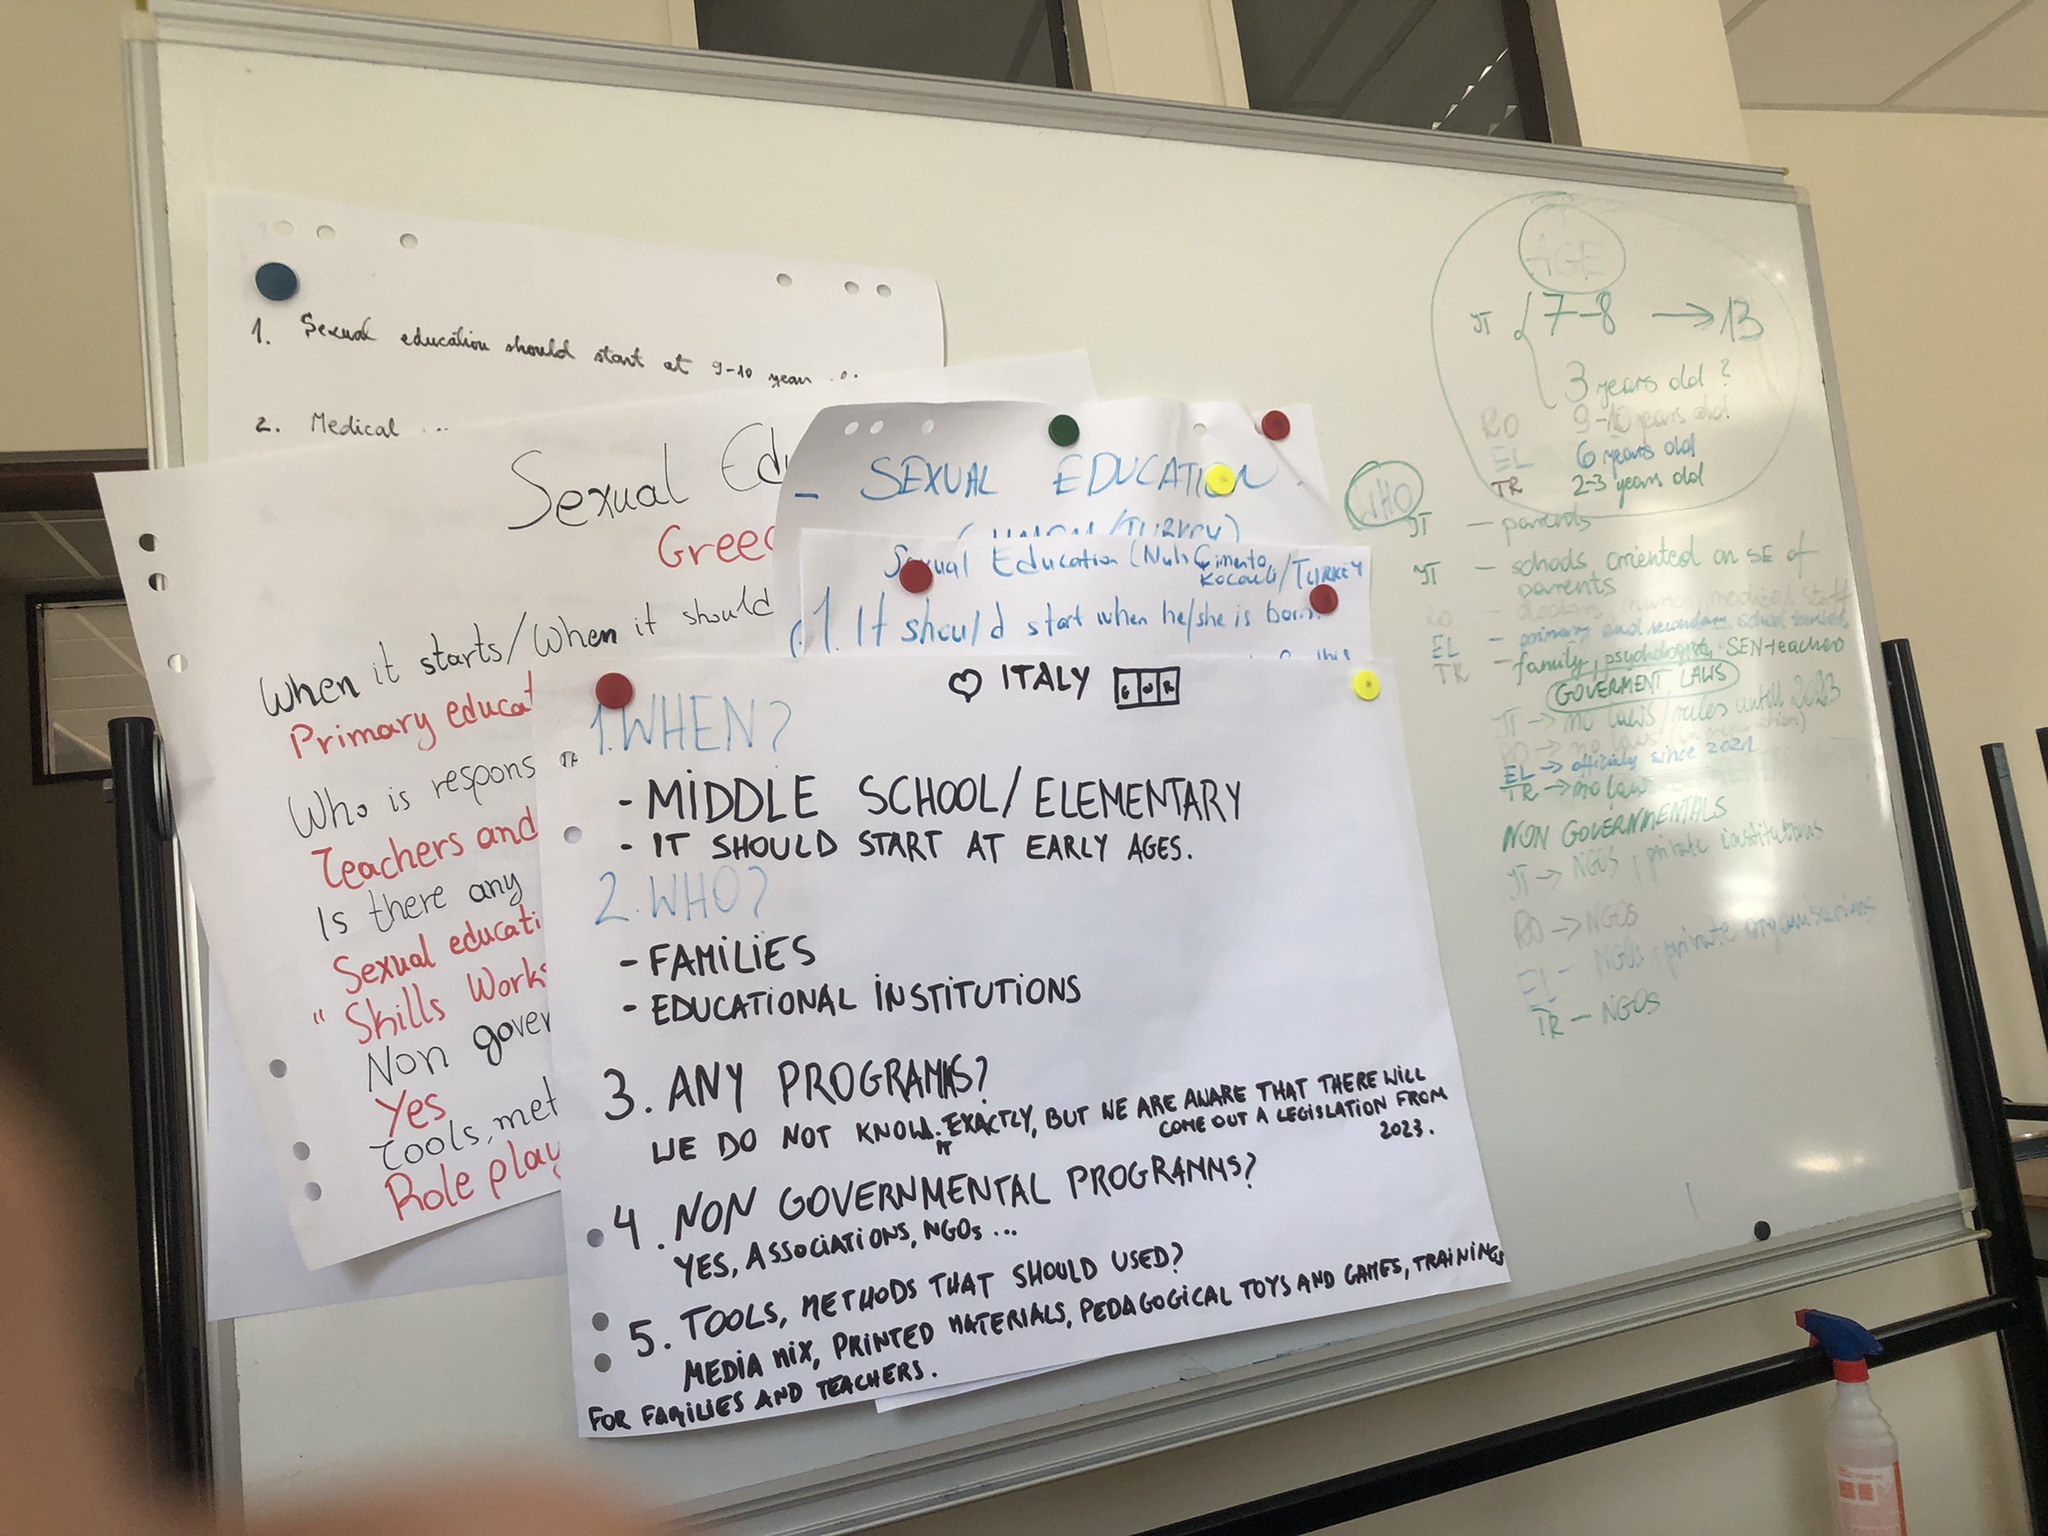 1. Sexual education should start at 9-10 year
2. Medical ...
Sexual Edu
Greec
When it starts/When it should
Primary educat
Who is respons
Teachers and
Is there any
Sexual educati
" Skills Works
Non gover
Yes
Tools, met
Role play
- SEXUAL EDUCATION -
/TURKEY)
Sexual Education (Nuh Çimento
Kocaeli/TURKEY
1. It should start when he/she is born.
♡ ITALY
1. WHEN?
- MIDDLE SCHOOL/ELEMENTARY
- IT SHOULD START AT EARLY AGES.
2. WHO?
- FAMILIES
- EDUCATIONAL INSTITUTIONS
3. ANY PROGRAMS?
WE DO NOT KNOW IT EXACTLY, BUT WE ARE AWARE THAT THERE WILL
COME OUT A LEGISLATION FROM
2023.
4. NON GOVERNMENTAL PROGRAMMS?
YES, ASSOCIATIONS, NGOs ...
5. TOOLS, METHODS THAT SHOULD USED?
MEDIA MIX, PRINTED MATERIALS, PEDAGOGICAL TOYS AND GAMES, TRAININGS
FOR FAMILIES AND TEACHERS.
AGE
IT 7-8 → 13
3 years old?
RO 9-10 years old
EL 6 years old
TR 2-3 years old
WHO
IT - parents
IT - schools oriented on SE of
parents
RO - doctors, nurses, medical staff
EL - primary and secondary school teachers
TR - family, psychologists, SEN-teacher
GOVERMENT LAWS
IT → no laws/rules untill 2023
RO → no laws
EL → officialy since 2021
TR → no laws
NON GOVERNMENTALS
IT → NGOS, private institutions
RO → NGOS
EL - NGOs, private organisations
TR - NGOS